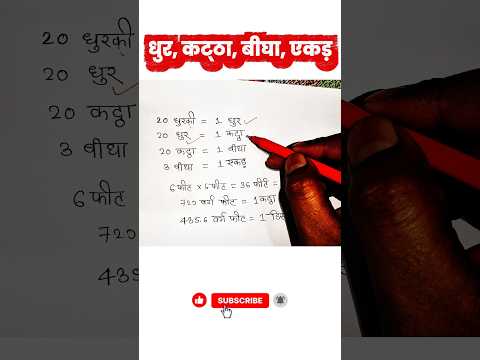 धुर, कट्ठा, बीघा, एकड़
20 धुरकी = 1 धुर
20 धुर = 1 कट्ठा
20 कट्ठा = 1 बीघा
3 बीघा = 1 एकड़
6 फीट x 6 फीट = 36 फीट =
720 वर्ग फीट = 1 कट्ठा
435.6 वर्ग फीट = 1
20 धुरकी
20 धुर
20 कट्ठा
3 बीघा
6 फीट
720
435
SUBSCRIBE